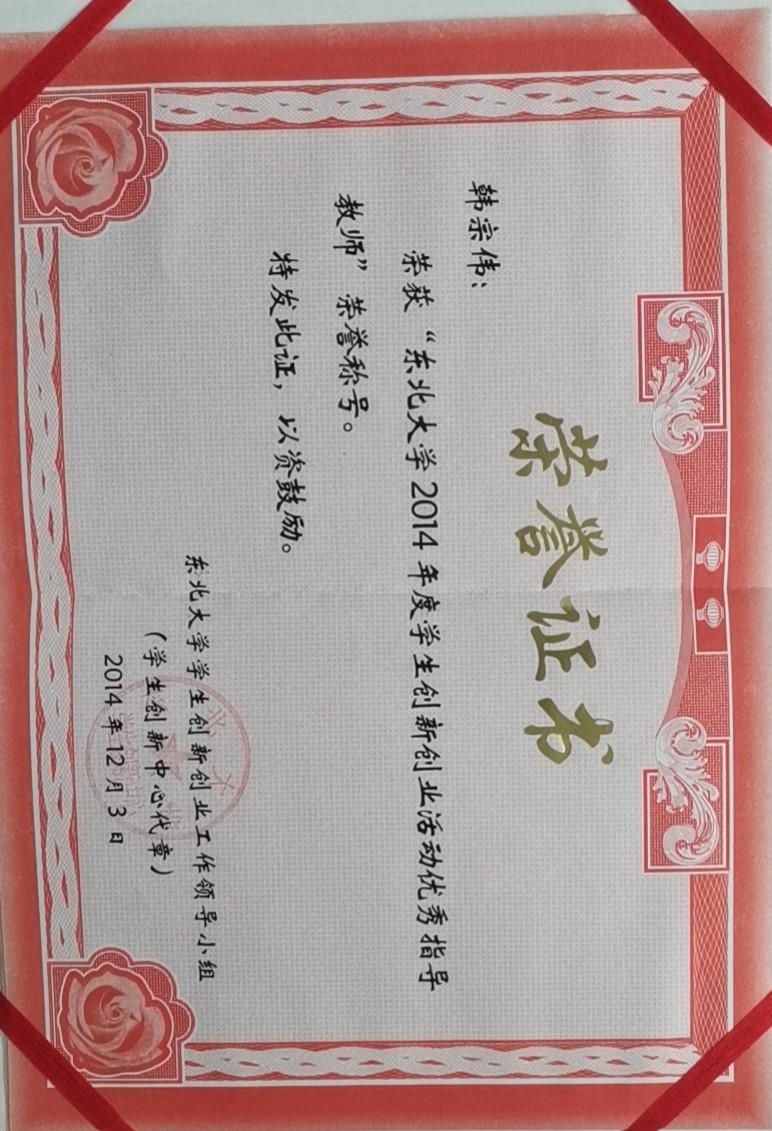 荣誉证书
韩宗伟：
荣获“东北大学2014年度学生创新创业活动优秀指导
教师”荣誉称号。
特发此证，以资鼓励。
东北大学学生创新创业工作领导小组
（学生创新中心代章）
2014年12月3日